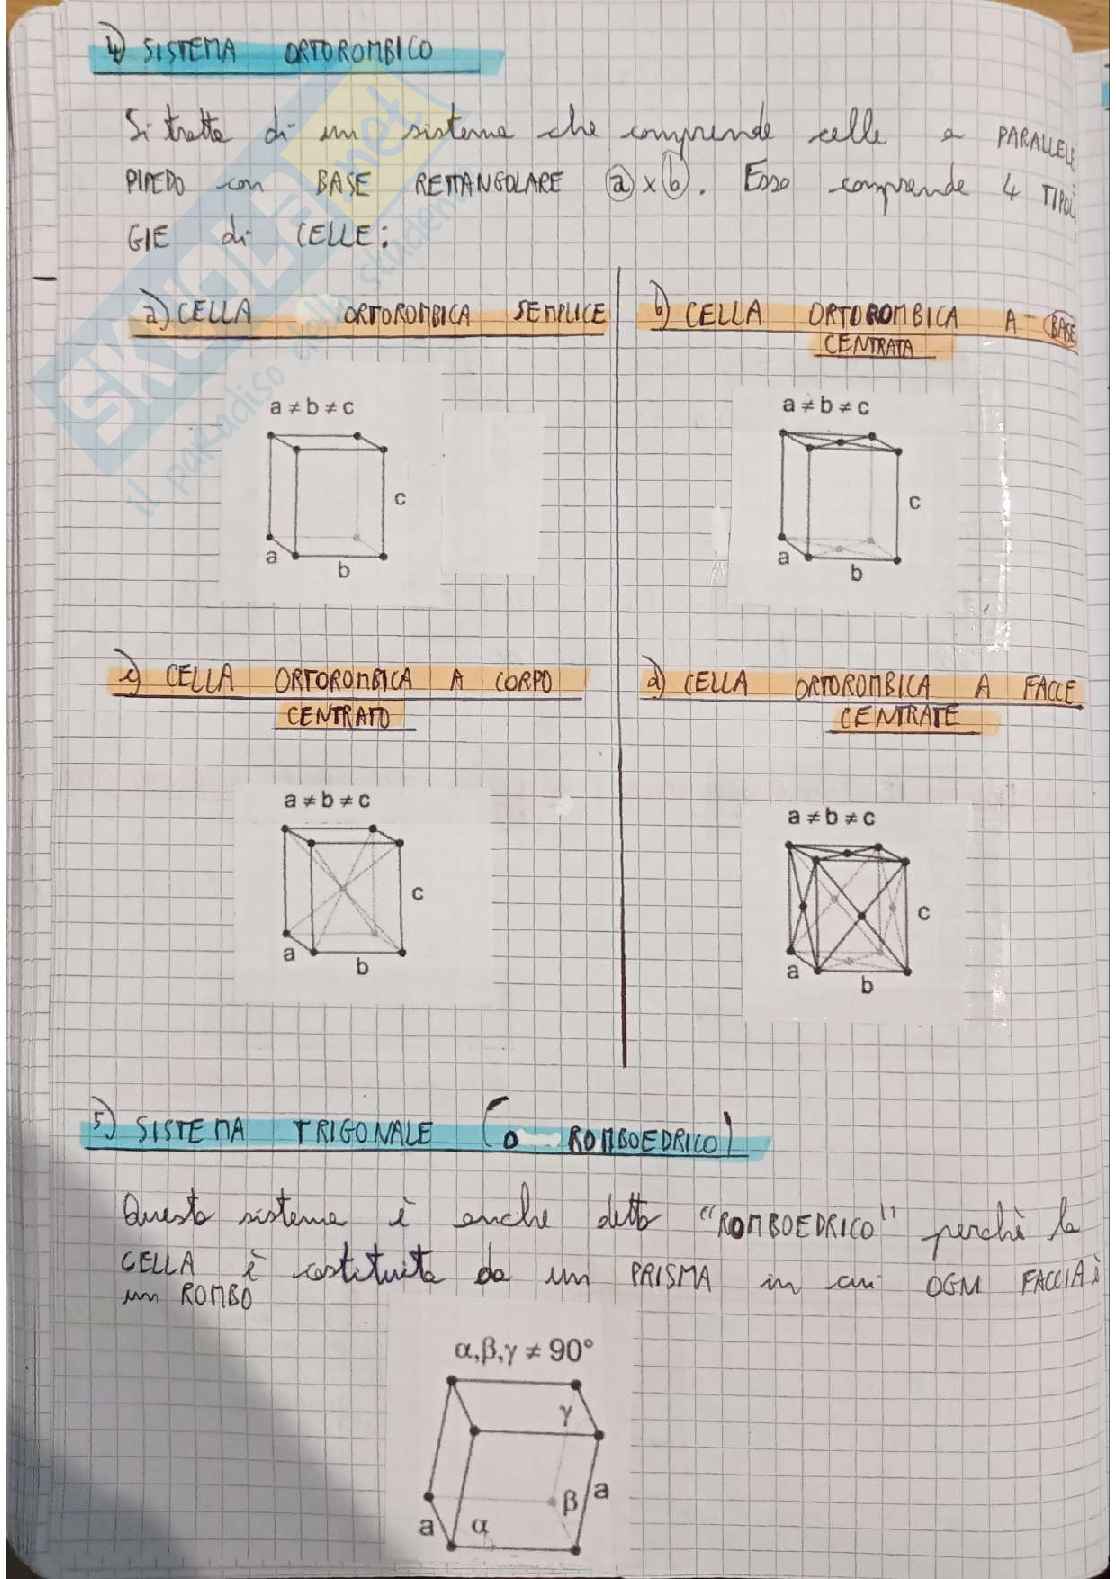 4) SISTEMA ORTOROMBICO
Si tratta di un sistema che comprende celle a PARALLELE
PIPEDO con BASE RETTANGOLARE a x b. Esso comprende 4 TIPOLO
GIE di CELLE:
a) CELLA ORTOROMBICA SEMPLICE
b) CELLA ORTOROMBICA A BASE
CENTRATA
a ≠ b ≠ c
c
a
b
a ≠ b ≠ c
c
a
b
c) CELLA ORTOROMBICA A CORPO
CENTRATO
d) CELLA ORTOROMBICA A FACCE
CENTRATE
a ≠ b ≠ c
c
a
b
a ≠ b ≠ c
c
a
b
5) SISTEMA TRIGONALE (O ROMBOEDRICO)
Questo sistema è anche detto "ROMBOEDRICO" perchè la
CELLA è costituita da un PRISMA in cui OGNI FACCIA è
un ROMBO
α,β,γ ≠ 90°
γ
β
a
a
α
SKUOLA.net
il paradiso dello studente